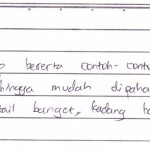 bererta contoh-cont
hingga mudah dipaha
tail banget, kadang ba